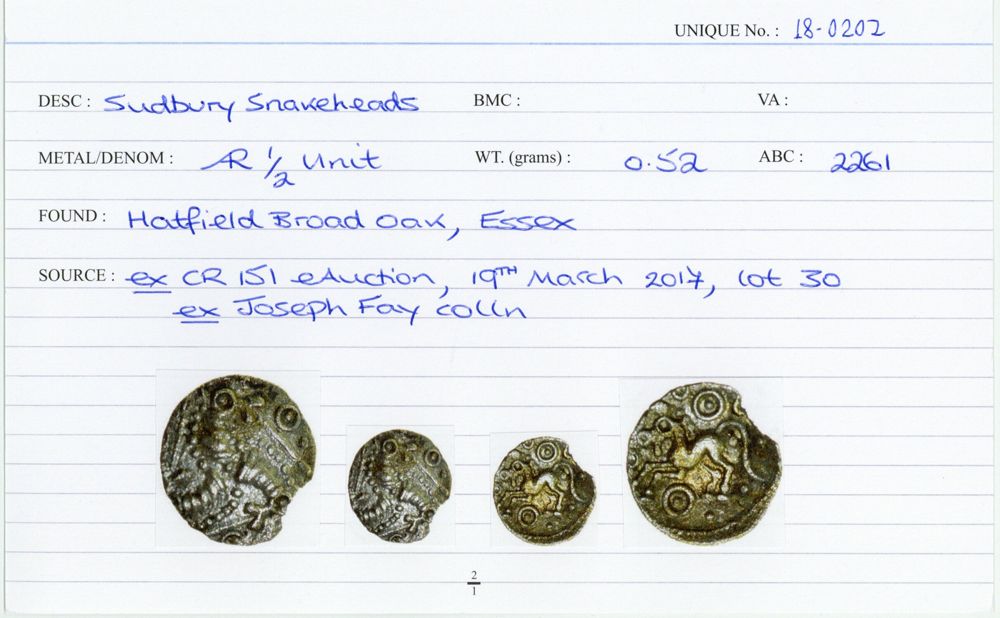 UNIQUE No. : 18-0202
DESC : Sudbury Snakeheads BMC : VA :
METAL/DENOM : AR 1/2 Unit WT. (grams) : 0.52 ABC : 2261
FOUND : Hatfield Broad Oak, Essex
SOURCE : ex CR 151 eAuction, 19TH March 2017, lot 30
ex Joseph Fay colln
2
1